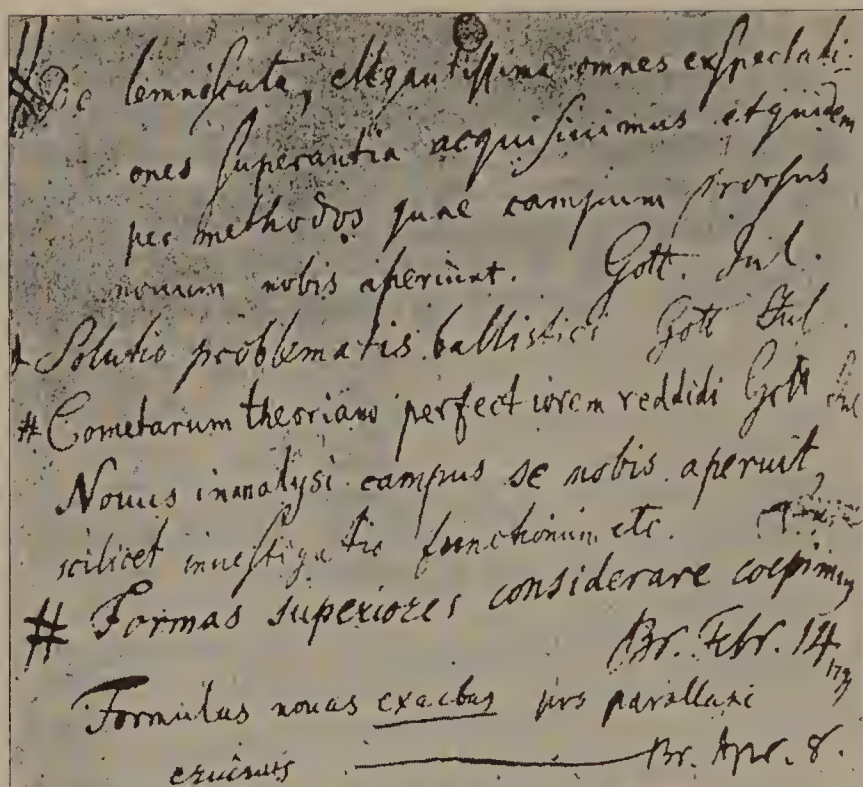 # De lemniscata, elegantissima omnes exspectati-
ones superantia acquisiuimus et quidem
per methodos quae campum prorsus
nouum nobis aperiunt. Gott. Jul.
Solutio problematis ballistici Gott Jul.
# Cometarum theoriam perfectiorem reddidi Gott Jul
Nouus in analysi campus se nobis aperuit,
scilicet inuestigatio functionum etc.
# Formas superiores considerare coepimus
Br. Febr. 14
1799
Formulas nouas exactas pro parallaxi
eruimus Br. Apr. 8.